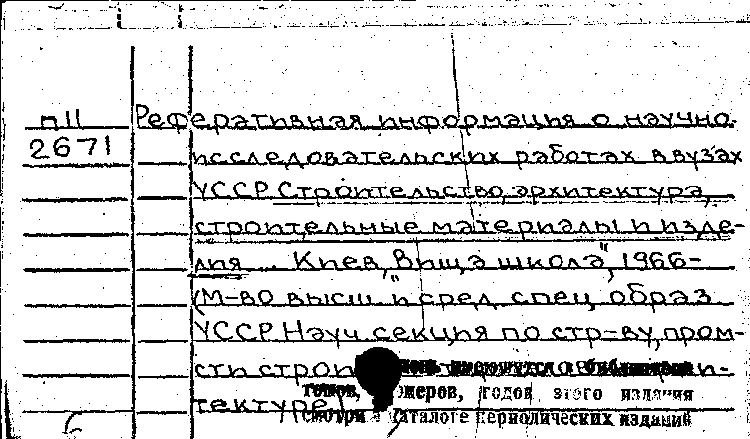 п11 Реферативная информация о научно-
2671 исследовательских работах в вузах
УССР Строительство, архитектура,
строительные материалы и изде-
лия. Киев, "Вища школа", 1966-
(М-во высш. и сред. спец. образ.
УССР. Науч. секция по стр-ву, пром-
сти строи
тектуре)
томов, номеров, годов этого издания
смотри в каталоге периодических изданий
6